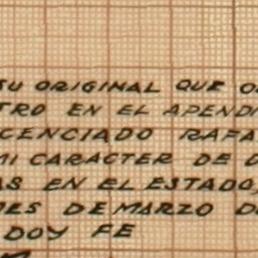 SU ORIGINAL QUE O
TRO EN EL APENDI
CENCIADO RAFA
MI CARACTER DE
AS EN EL ESTADO,
MES DE MARZO D
DOY FE